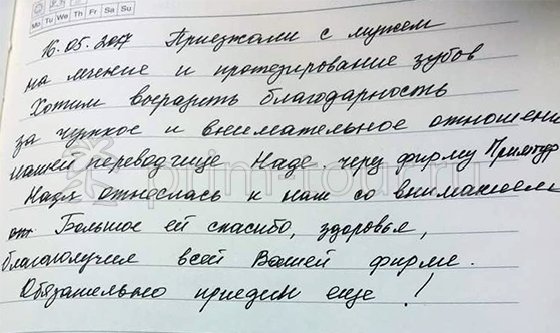 Mo Tu We Th Fr Sa Su
16.05.2017 Приезжали с мужем
на лечение и протезирование зубов
Хотим выразить благодарность
за чуткое и внимательное отношение
нашей переводчице Наде. через фирму Примтур
Надя отнеслась к нам со вниманием
от Большое ей спасибо, здоровья,
благополучия всей Вашей фирме.
Обязательно приедим еще!